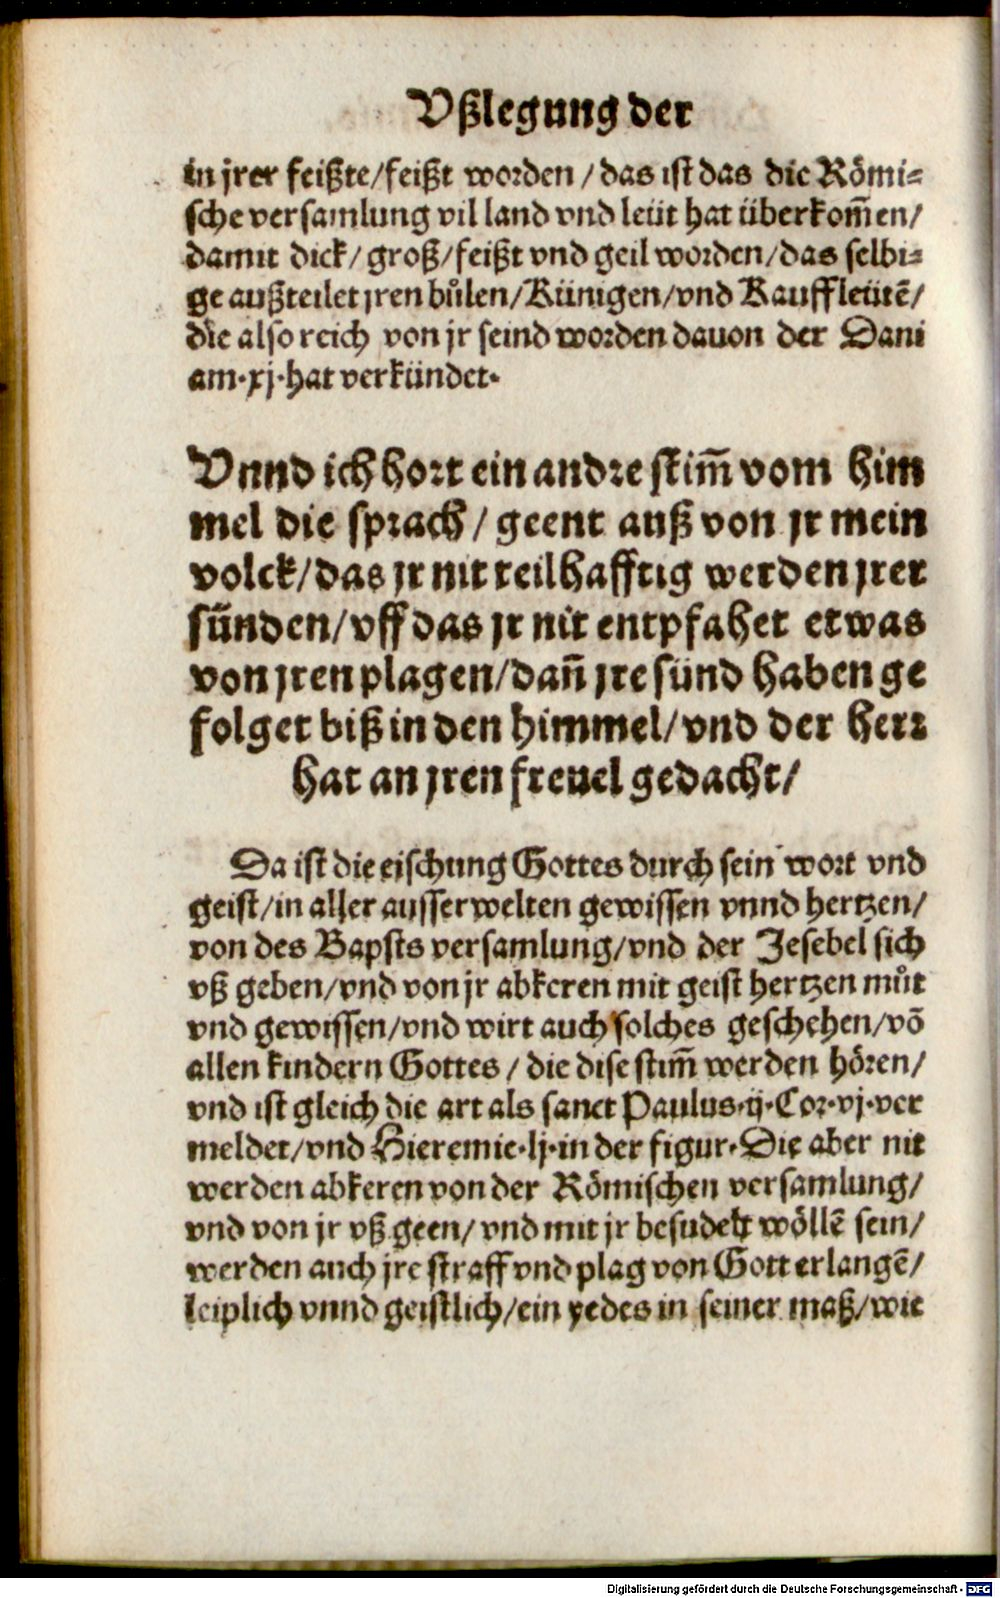 Vßlegung der
in jrer feißte/feißt worden/das ist das die Römi⸗
sche versamlung vil land vnd leüt hat überkom̄en/
damit dick/groß/feißt vnd geil worden/das selbi⸗
ge außteilet jren bůlen/Künigen/vnd Kauffleütē/
die also reich von jr seind worden dauon der Dani
am·xj·hat verkündet·
Vnnd ich hort ein andre stim̄ vom him
mel die sprach/geent auß von jr mein
volck/das jr nit teilhafftig werden jrer
sünden/vff das jr nit entpfahet etwas
von jren plagen/dan̄ jre sünd haben ge
folget biß in den himmel/vnd der herr
hat an jren freuel gedacht/
Da ist die eischung Gottes durch sein wort vnd
geist/in aller ausserwelten gewissen vnnd hertzen/
von des Bapsts versamlung/vnd der Jesebel sich
vß geben/vnd von jr abkeren mit geist hertzen můt
vnd gewissen/vnd wirt auch solches geschehen/vō
allen kindern Gottes/die dise stim̄ werden hören/
vnd ist gleich die art als sanct Paulus·ij·Cor·vj·ver
meldet/vnd Hieremie·lj·in der figur·Die aber nit
werden abkeren von der Römischen versamlung/
vnd von jr vß geen/vnd mit jr besudelt wöllē sein/
werden auch jre straff vnd plag von Gott erlangē/
leiplich vnnd geistlich/ein yedes in seiner maß/wie
Digitalisierung gefördert durch die Deutsche Forschungsgemeinschaft - DFG